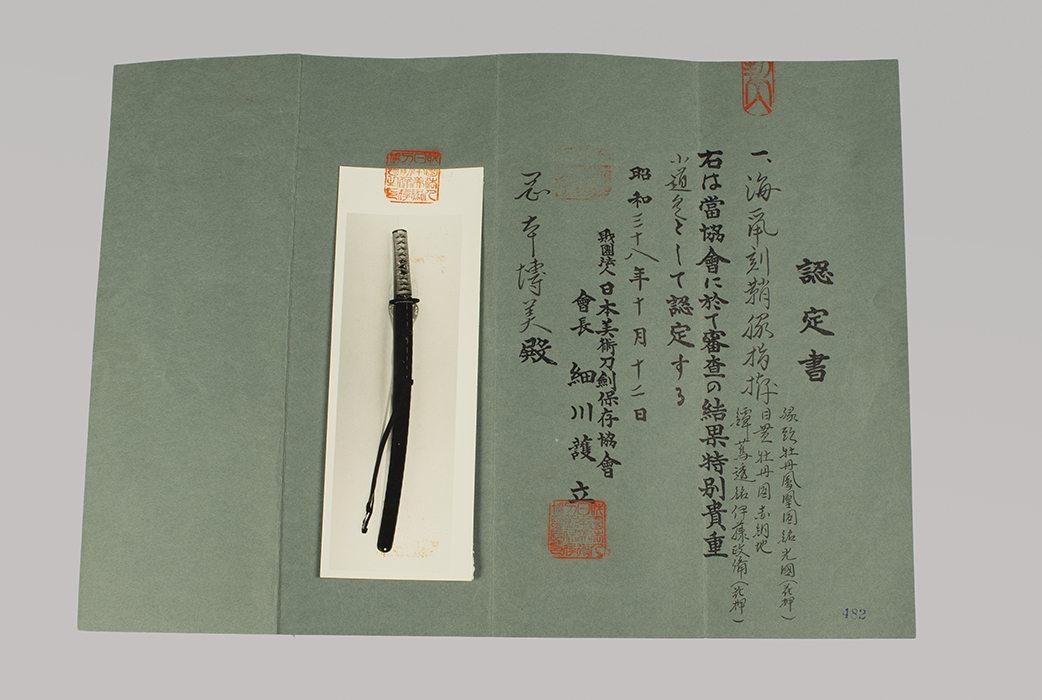 認定書
一、海鼠刻鞘脇指拵
縁頭牡丹鳳凰図銘光國(花押)
目貫牡丹図赤銅地
鐔蔦透銘伊藤政備(花押)
右は當協會に於て審査の結果特別貴重
小道具として認定する
昭和三十八年十月十二日
財團法人日本美術刀劍保存協會
會長 細川護立
博美殿
482